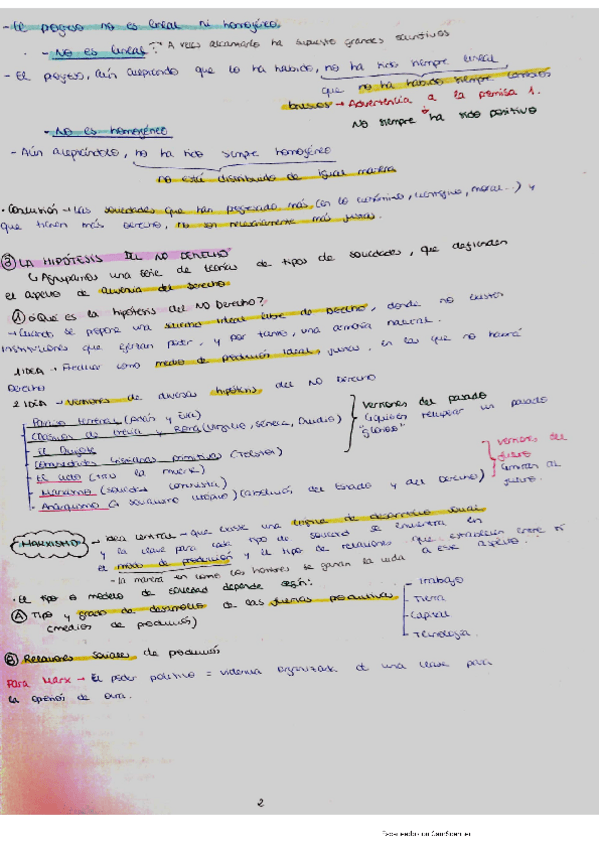 - El progreso no es lineal ni homogéneo
- No es lineal: A veces alcanzarlo ha supuesto grandes sacrificios
- El progreso, aún aceptando que lo ha habido, no ha sido siempre lineal
que no ha habido siempre cambios
buenos → Advertencia a la premisa 1.
No siempre ha sido positivo
- No es homogéneo
- Aún aceptándolo, no ha sido siempre homogéneo
no está distribuido de igual manera
• Conclusión → Las sociedades que han progresado más (en lo económico, moral...) y
que tienen más derecho, no son necesariamente más justas.
③ LA HIPÓTESIS DEL NO DERECHO
↳ Agrupamos una serie de teorías de tipos de sociedades, que defienden
el aspecto de ausencia del Derecho
Ⓐ ¿Qué es la hipótesis del NO Derecho?
→ Cuando se propone una ideal libre de Derecho, donde no existen
instituciones que ejerzan poder, y por tanto, una armonía natural.
1 IDEA → como modo de producción ideal, justas, en las que no habrá
Derecho
2 IDEA → versiones de diversas hipótesis del NO Derecho
Paraíso terrenal (Adán y Eva)
Clásicos de Grecia y Roma (Virgilio, Séneca, Ovidio)
El Quijote
Comunidades cristianas primitivas (Tolstoi)
El cielo (tras la muerte)
Marxismo (sociedad comunista)
Anarquismo (o socialismo utópico) (abolición del Estado y del Derecho)
versiones del pasado
quieren recuperar un pasado
"glorioso"
versiones del
futuro
miran al
futuro.
MARXISMO → idea central → que existe una línea de desarrollo social
y la clave para cada tipo de sociedad se encuentra en
el modo de producción y el tipo de relaciones que establecen entre sí
- la manera en como los hombres se ganan la vida a este respecto.
• El tipo o modelo de sociedad depende según:
Ⓐ Tipo y grado de desarrollo de las fuerzas productivas
(medios de producción)
- Trabajo
- Tierra
- Capital
- Tecnología.
Ⓑ Relaciones sociales de producción
Para Marx → El poder político = violencia organizada de una clase para
la opresión de otra.
2
Escaneado con CamScanner